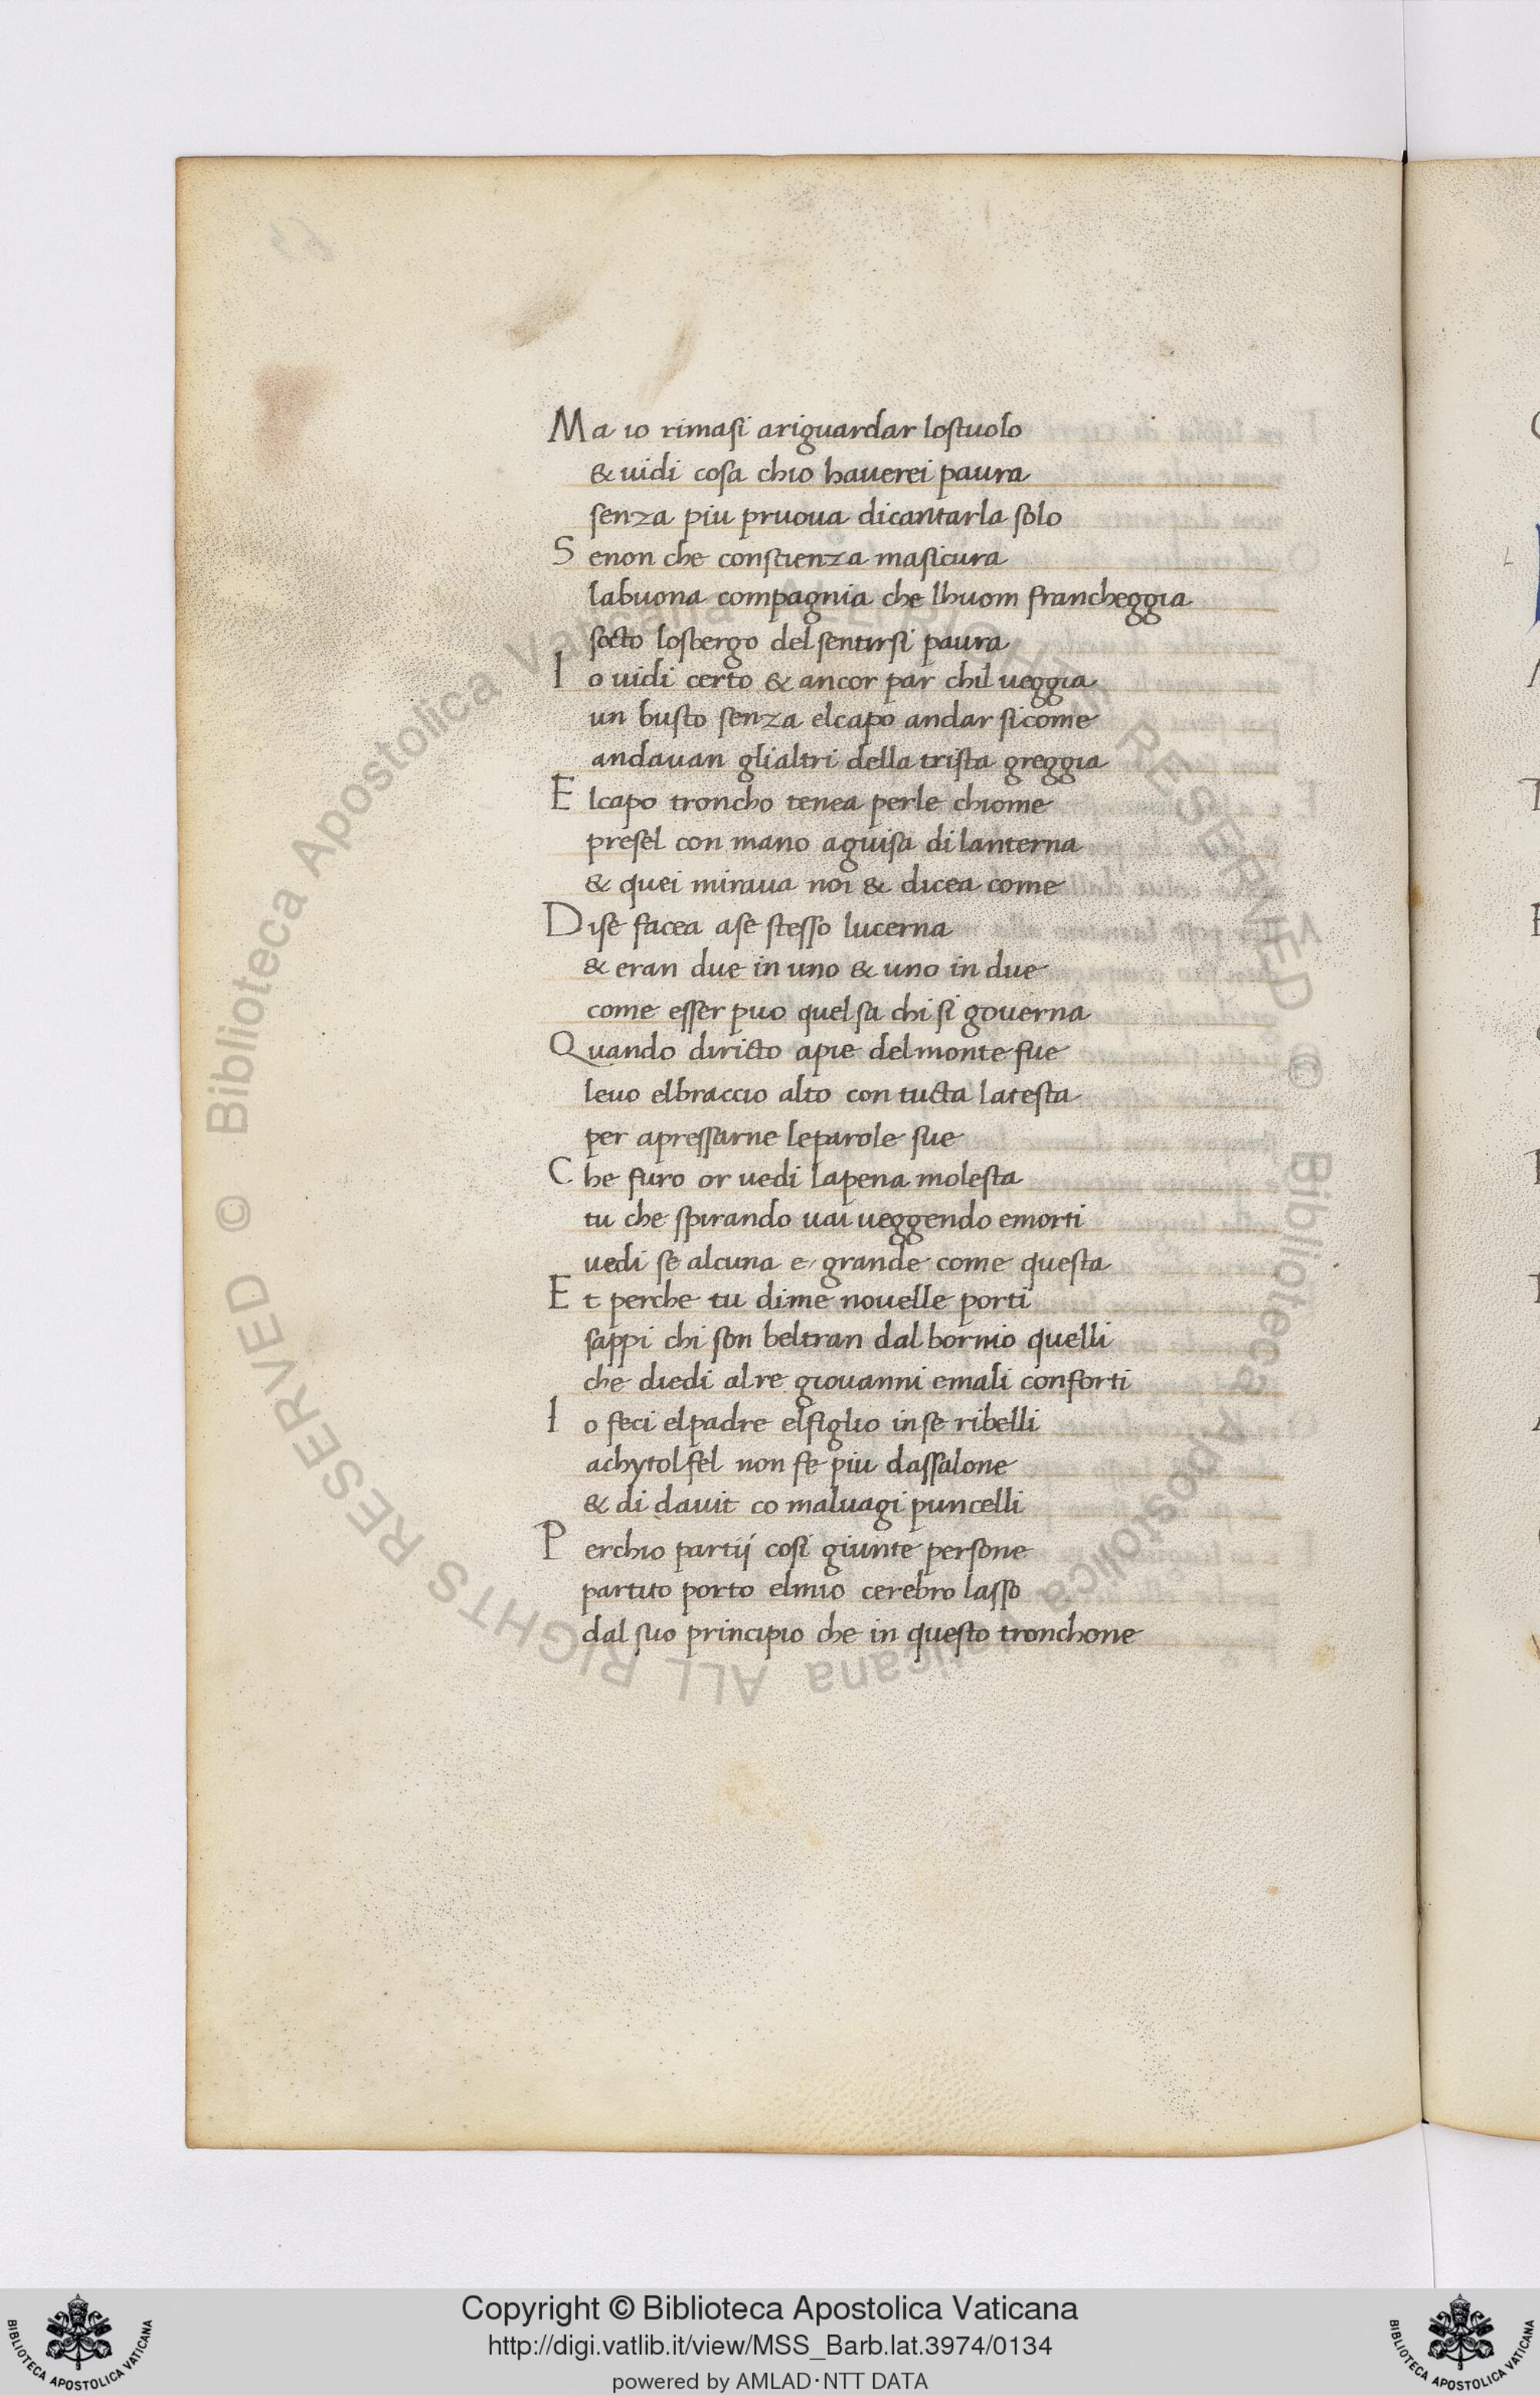 Ma io rimasi ariguardar lostuolo
& uidi cosa chio hauerei paura
senza piu pruoua dicantarla solo
Senon che conscienza masicura
labuona compagnia che lhuom francheggia
socto losbergo del sentirsi paura
Io uidi certo & ancor par chil ueggia
un busto senza elcapo andar sicome
andauan glialtri della trista greggia
Elcapo troncho tenea perle chiome
presel con mano aguisa di lanterna
& quei miraua noi & dicea come
Dise facea ase stesso lucerna
& eran due in uno & uno in due
come esser puo quel sa chi si gouerna
Quando diricto apie delmonte fue
leuo elbraccio alto con tucta latesta
per apressarne leparole sue
Che furo or uedi lapena molesta
tu che spirando uai ueggendo emorti
uedi se alcuna e grande come questa
Et perche tu dime nouelle porti
sappi chi son beltran dal bornio quelli
che diedi alre giouanni emali conforti
Io feci elpadre elfiglio inse ribelli
achytolfel non fe piu dassalone
& di dauit co maluagi puncelli
Perchio partij cosi giunte persone
partito porto elmio cerebro lasso
dal suo principio che in questo tronchone
© Biblioteca Apostolica Vaticana ALL RIGHTS RESERVED © Biblioteca Apostolica Vaticana ALL RIGHTS RESERVED
Copyright © Biblioteca Apostolica Vaticana
http://digi.vatlib.it/view/MSS_Barb.lat.3974/0134
powered by AMLAD·NTT DATA
BIBLIOTECA APOSTOLICA VATICANA
BIBLIOTECA APOSTOLICA VATICANA